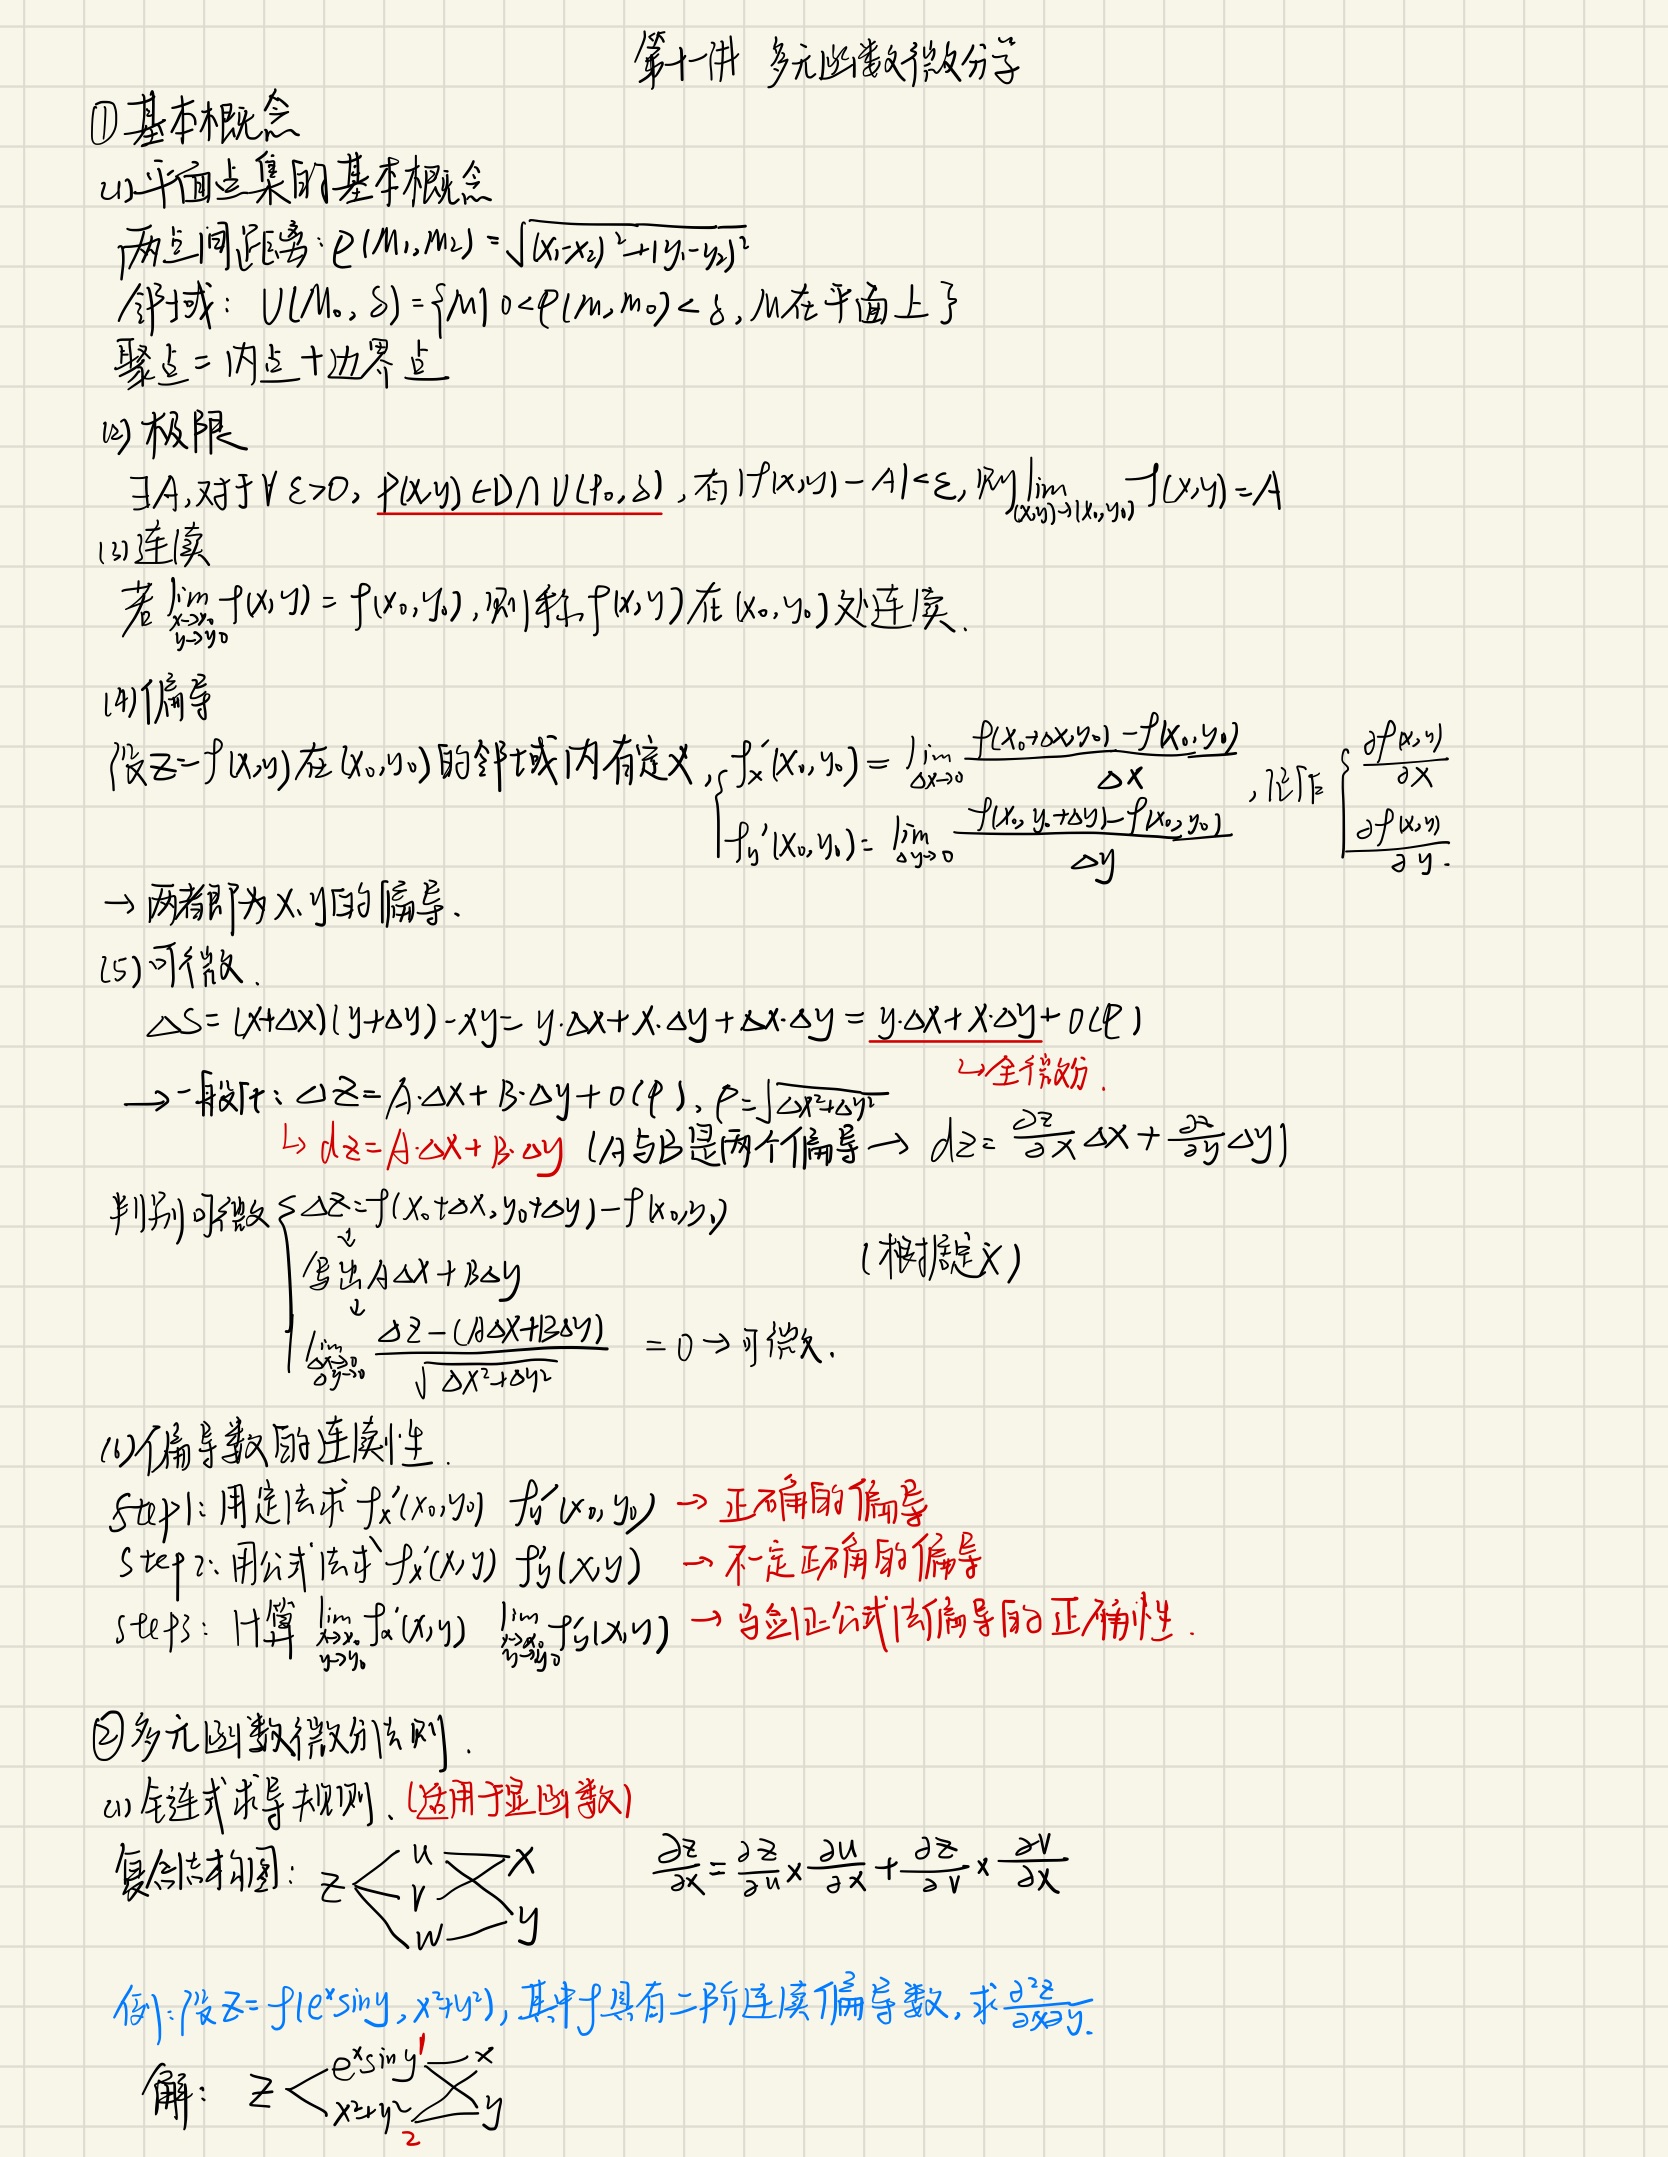 第十一讲 多元函数微分学
①基本概念
(1)平面点集的基本概念
两点间距离:ρ(M₁,M₂)=√((x₁-x₂)²+(y₁-y₂)²)
邻域: U(M₀,δ)={M|0<ρ(M,M₀)<δ,M在平面上}
聚点=内点+边界点
(2)极限
∃A,对于∀ε>0, P(x,y)∈D∩U(P₀,δ),有|f(x,y)-A|<ε,则lim_{(x,y)→(x₀,y₀)} f(x,y)=A
(3)连续
若 lim_{x→x₀ y→y₀} f(x,y)=f(x₀,y₀),则称f(x,y)在(x₀,y₀)处连续.
(4)偏导
设z=f(x,y)在(x₀,y₀)的邻域内有定义, { f′ₓ(x₀,y₀)=lim_{Δx→0} (f(x₀+Δx,y₀)-f(x₀,y₀))/Δx ,记作 { ∂f(x,y)/∂x
f′y(x₀,y₀)=lim_{Δy→0} (f(x₀,y₀+Δy)-f(x₀,y₀))/Δy ∂f(x,y)/∂y.
→两者即为x、y的偏导.
(5)可微.
ΔS=(x+Δx)(y+Δy)-xy=y·Δx+x·Δy+Δx·Δy=y·Δx+x·Δy+o(ρ)
↳全微分.
→一般地:Δz=A·Δx+B·Δy+o(ρ), ρ=√(Δx²+Δy²)
↳dz=A·Δx+B·Δy (A与B是两个偏导→ dz=∂z/∂x Δx+∂z/∂y Δy)
判别可微 { Δz=f(x₀+Δx,y₀+Δy)-f(x₀,y₀)
↓
写出AΔx+BΔy (根据定义)
↓
lim_{Δx→0 Δy→0} (Δz-(AΔx+BΔy))/√(Δx²+Δy²) =0→可微.
(6)偏导数的连续性.
Step1:用定法求 f′ₓ(x₀,y₀) f′y(x₀,y₀) →正确的偏导
Step2:用公式法求 f′ₓ(x,y) f′y(x,y) →不一定正确的偏导
step3:计算 lim_{x→x₀ y→y₀} f′ₓ(x,y) lim_{x→x₀ y→y₀} f′y(x,y) →验证公式法偏导的正确性.
②多元函数微分法则.
(1)全链式求导规则.(适用于显函数)
复合结构图: z u v w x y ∂z/∂x=∂z/∂u×∂u/∂x+∂z/∂v×∂v/∂x
例:设z=f(eˣsiny,x²+y²),其中f具有二阶连续偏导数,求∂²z/∂x∂y.
解: z eˣsiny 1 x
x²+y² 2 y